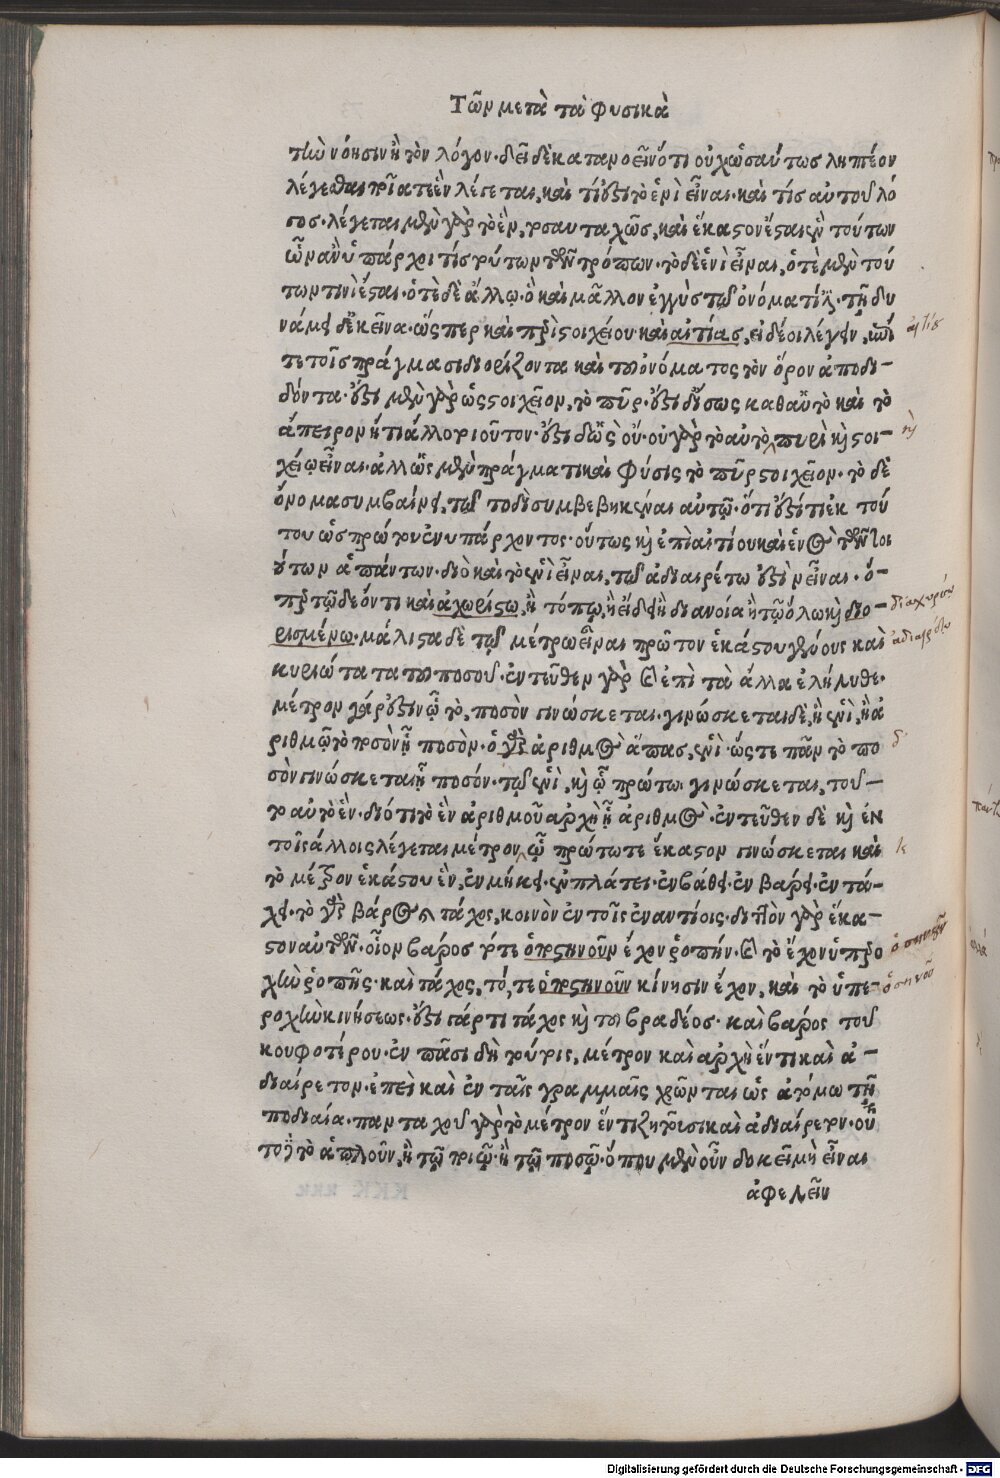 Τῶν μετὰ τὰ φυσικὰ
τὴν νόησιν ἢ τὸν λόγον. δεῖ δὲ κατανοεῖν ὅτι οὐχ ὡσαύτως ληπτέον
λέγεσθαι ποῖά τε ἓν λέγεται, καὶ τί ὅστι τὸ ἑνὶ εἶναι. καὶ τίς αὐτοῦ λό
γος. λέγεται μὲν γὰρ τὸ ἓν, τοσαυταχῶς, καὶ ἕκαστον ἔσται ἓν τούτων
ὧν ἂν ὑπάρχῃ τὶς τούτων τῶν τρόπων. τὸ δὲ ἑνὶ εἶναι, ὁτὲ μὲν τού
των τινὶ ἔσται. ὁτὲ δὲ ἄλλῳ. ὃ καὶ μᾶλλον ἐγγὺς τῷ ὀνόματί ἐστι. τῇ δυ
νάμει δ᾽ ἐκεῖνα. ὥσπερ καὶ περὶ στοιχείου καὶ αἰτίας, εἰ δέοι λέγειν, ἐπί
τε τοῖς πράγμασι διορίζοντα καὶ τοῦ ὀνόματος τὸν ὅρον ἀποδι-
δόντα. ἔστι μὲν γὰρ ὡς στοιχεῖον, τὸ πῦρ. ἔστι δ᾽ ἴσως καθαὑτὸ καὶ τὸ
ἄπειρον ἤ τι ἄλλο τοιοῦτον. ἔστι δ᾽ ὡς οὔ. οὐ γὰρ τὸ αὐτὸ, πυρὶ καὶ στοι-
χείῳ εἶναι. ἀλλ᾽ ὡς μὲν πρᾶγμά τι καὶ φύσις τὸ πῦρ στοιχεῖον. τὸ δὲ
ὄνομα συμβαίνει, τῷ τοδὶ συμβεβηκέναι αὐτῷ. ὅτι ἐστί τι ἐκ τού
του ὡς πρώτου ἐνυπάρχοντος. οὕτως καὶ ἐπὶ αἰτίου καὶ ἑνὸς τῶν τοι
ούτων ἁπάντων. διὸ καὶ τὸ ἑνὶ εἶναι, τῷ ἀδιαιρέτῳ ἐστὶν εἶναι. ὅ-
περ τῷδε ὄντι καὶ ἀχωρίστῳ, ἢ τόπῳ, ἢ εἴδει ἢ διανοίᾳ ἢ τῷ ὅλῳ καὶ διο-
ρισμένῳ. μάλιστα δὲ τῷ μέτρῳ εἶναι πρῶτον ἑκάστου γένους καὶ
κυριώτατα τοῦ ποσοῦ. ἐντεῦθεν γὰρ καὶ ἐπὶ τὰ ἄλλα ἐλήλυθε.
μέτρον γάρ ἐστιν ᾧ τὸ, ποσὸν γινώσκεται. γινώσκεται δὲ, ἢ ἑνὶ, ἢ ἀ
ριθμῷ τὸ ποσὸν ᾗ ποσὸν. ὁ δὲ ἀριθμὸς ἅπας, ἑνὶ. ὥστε πᾶν τὸ πο
σὸν γινώσκεται ᾗ ποσόν. τῷ ἑνὶ, καὶ ᾧ πρώτῳ γινώσκεται, τοῦ-
το αὐτὸ ἓν. διότι τὸ ἓν ἀριθμοῦ ἀρχὴ ᾗ ἀριθμὸς. ἐντεῦθεν δὲ καὶ ἐν
τοῖς ἄλλοις λέγεται μέτρον, ᾧ πρώτῳ τε ἕκαστον γινώσκεται καὶ
τὸ μέτρον ἑκάστου ἓν, ἐν μήκει. ἐν πλάτει. ἐν βάθει. ἐν βάρει. ἐν τά-
χει. τὸ δὲ βάρος καὶ τάχος, κοινὸν ἐν τοῖς ἐναντίοις. διττὸν γὰρ ἑκα-
στον αὐτῶν. οἷον βάρος τό τε ὁποσηνοῦν ἔχον ῥοπήν. καὶ τὸ ἔχον ὑπερο
χὴν ῥοπῆς. καὶ τάχος, τό, τε ὁποσηνοῦν κίνησιν ἔχον, καὶ τὸ ὑπε-
ροχὴν κινήσεως. ἔστι γάρ τι τάχος καὶ τοῦ βραδέος. καὶ βάρος τοῦ
κουφοτέρου. ἐν πᾶσι δὴ τούτοις, μέτρον καὶ ἀρχὴ ἕν τι καὶ ἀ-
διαίρετον. ἐπεὶ καὶ ἐν ταῖς γραμμαῖς χρῶνται ὡς ἀτόμῳ τῇ
ποδιαία. πανταχοῦ γὰρ τὸ μέτρον ἕν τι ζητοῦσι καὶ ἀδιαίρετον. οὗ
τοῦ τὸ ἁπλοῦν, ἢ τῷ ποιῷ. ἢ τῷ ποσῷ. ὅπου μὲν οὖν δοκεῖ μὴ εἶναι
ἀφελεῖν